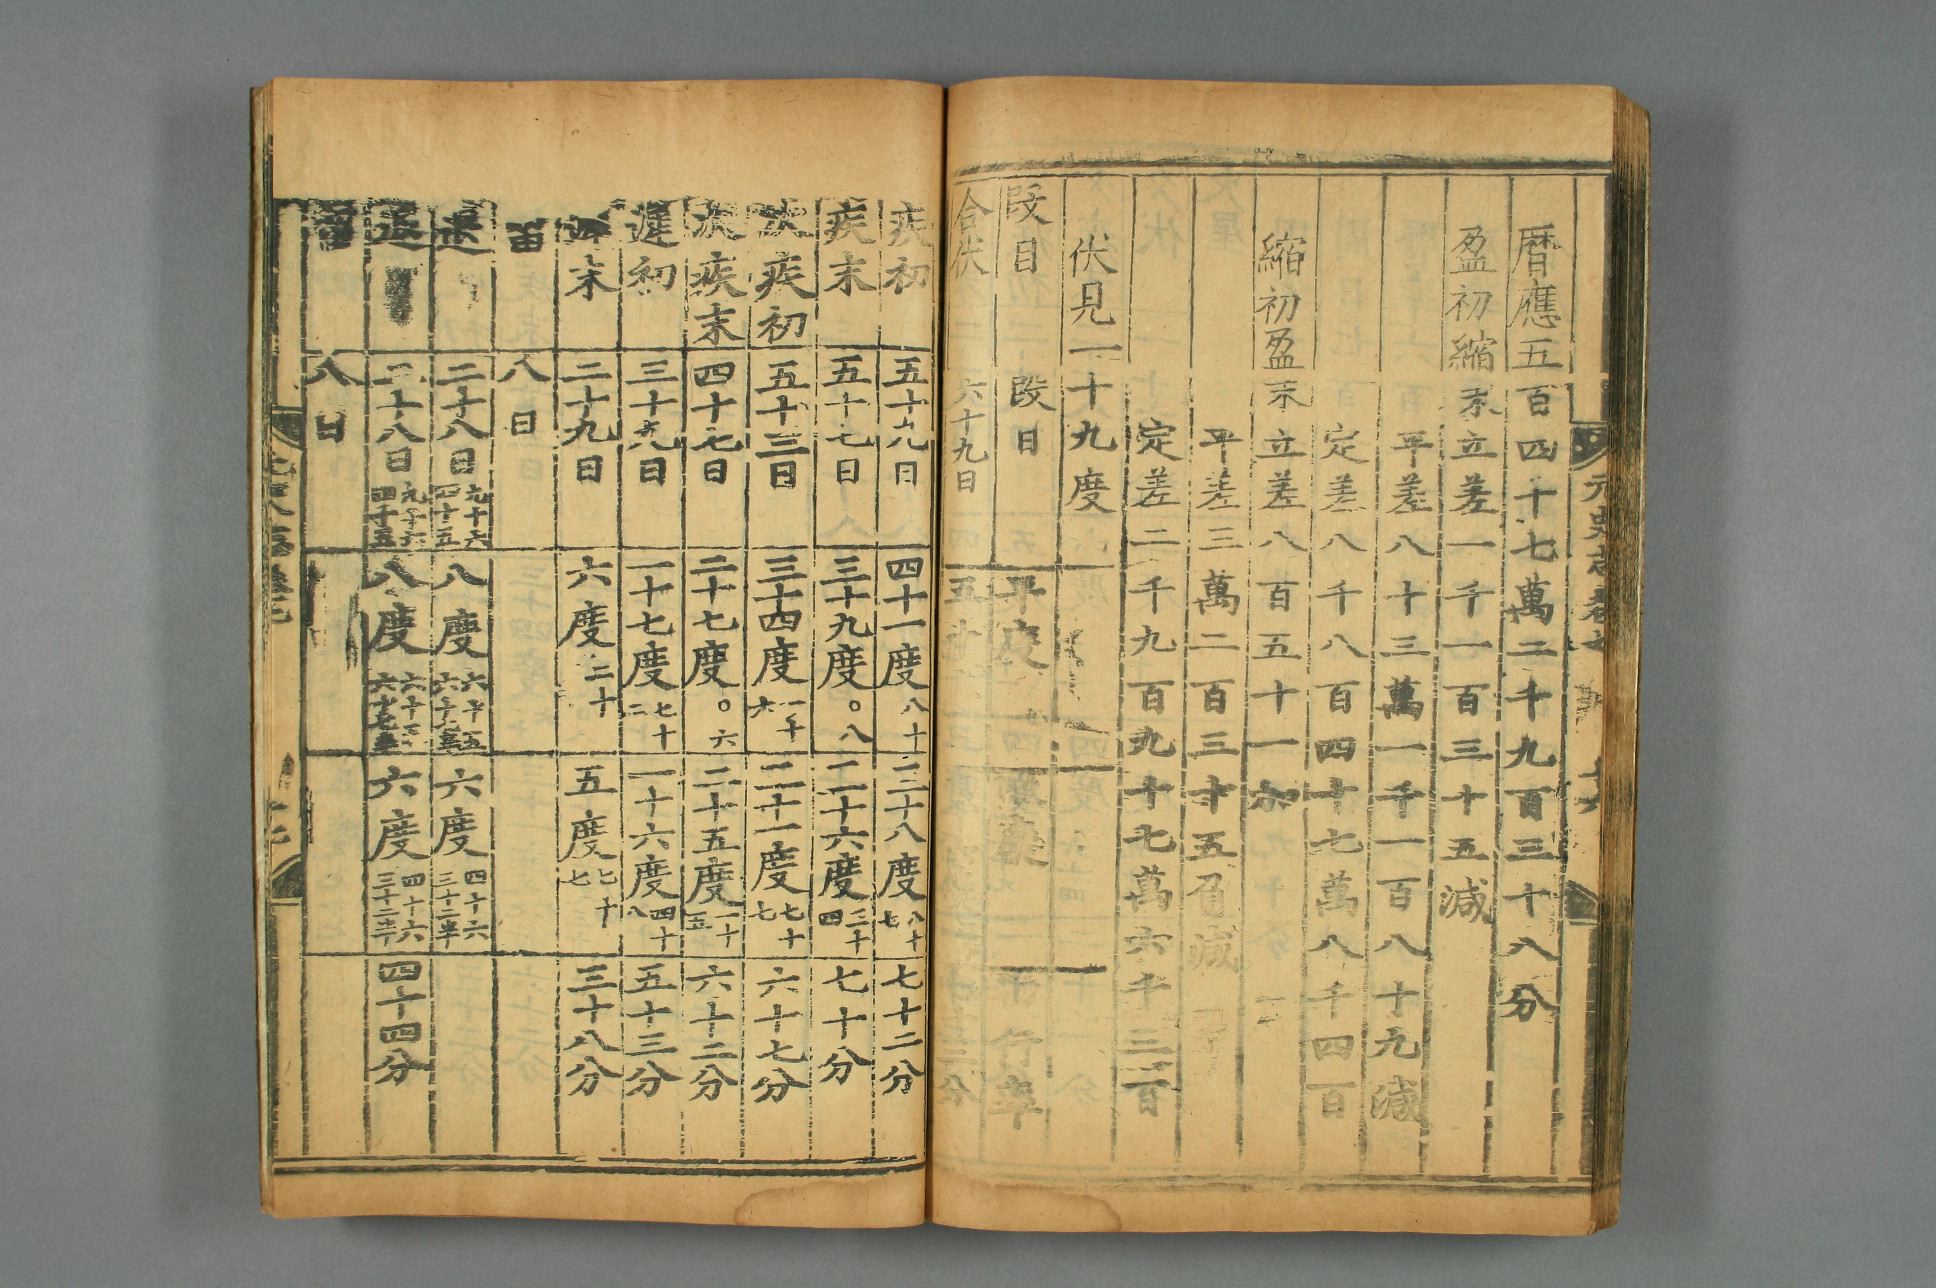 曆應五百四十七萬二千九百三十八分
盈初縮末立差一千一百三十五減
平差八十三萬一千一百八十九減
定差八千八百四十七萬八千四百
縮初盈末立差八百五十一加
平差三萬二百三十五負減
定差二千九百九十七萬六千三百
伏見一十九度
段目 段日 平度 限度 初行率
合伏 六十九日
疾初 五十九日 四十一度八十 三十八度八十七 七十二分
疾末 五十七日 三十九度〇八 三十六度三十四 七十分
次疾初 五十三日 三十四度一十六 三十一度七十七 六十七分
次疾末 四十七日 二十七度〇六 二十五度一十五 六十二分
遲初 三十九日 一十七度七十二 一十六度四十八 五十三分
遲末 二十九日 六度二十 五度七十七 三十八分
留 八日
退 二十八日九十六四十五 八度六十五六十七半 六度四十六三十二半
退 二十八日九十六四十五 八度六十五六十七半 六度四十六三十二半 四十四分
留 八日